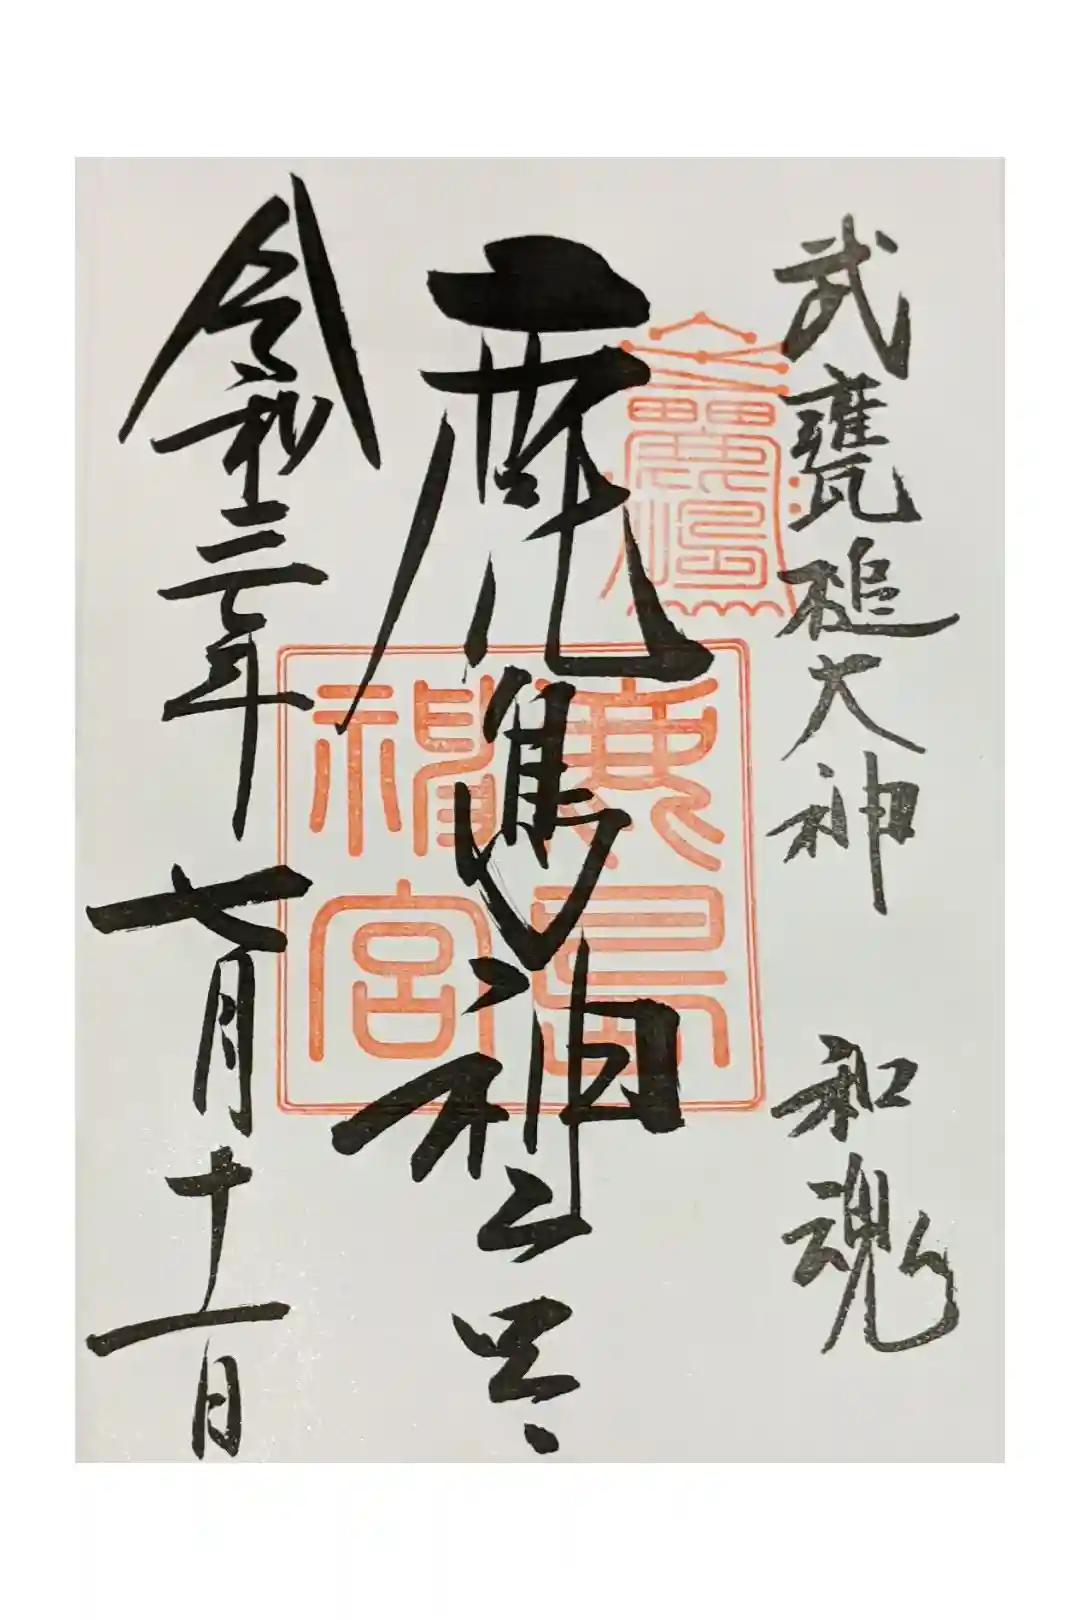 武甕槌大神　和魂
鹿島神宮
令和三年七月十一日
鹿島
神宮